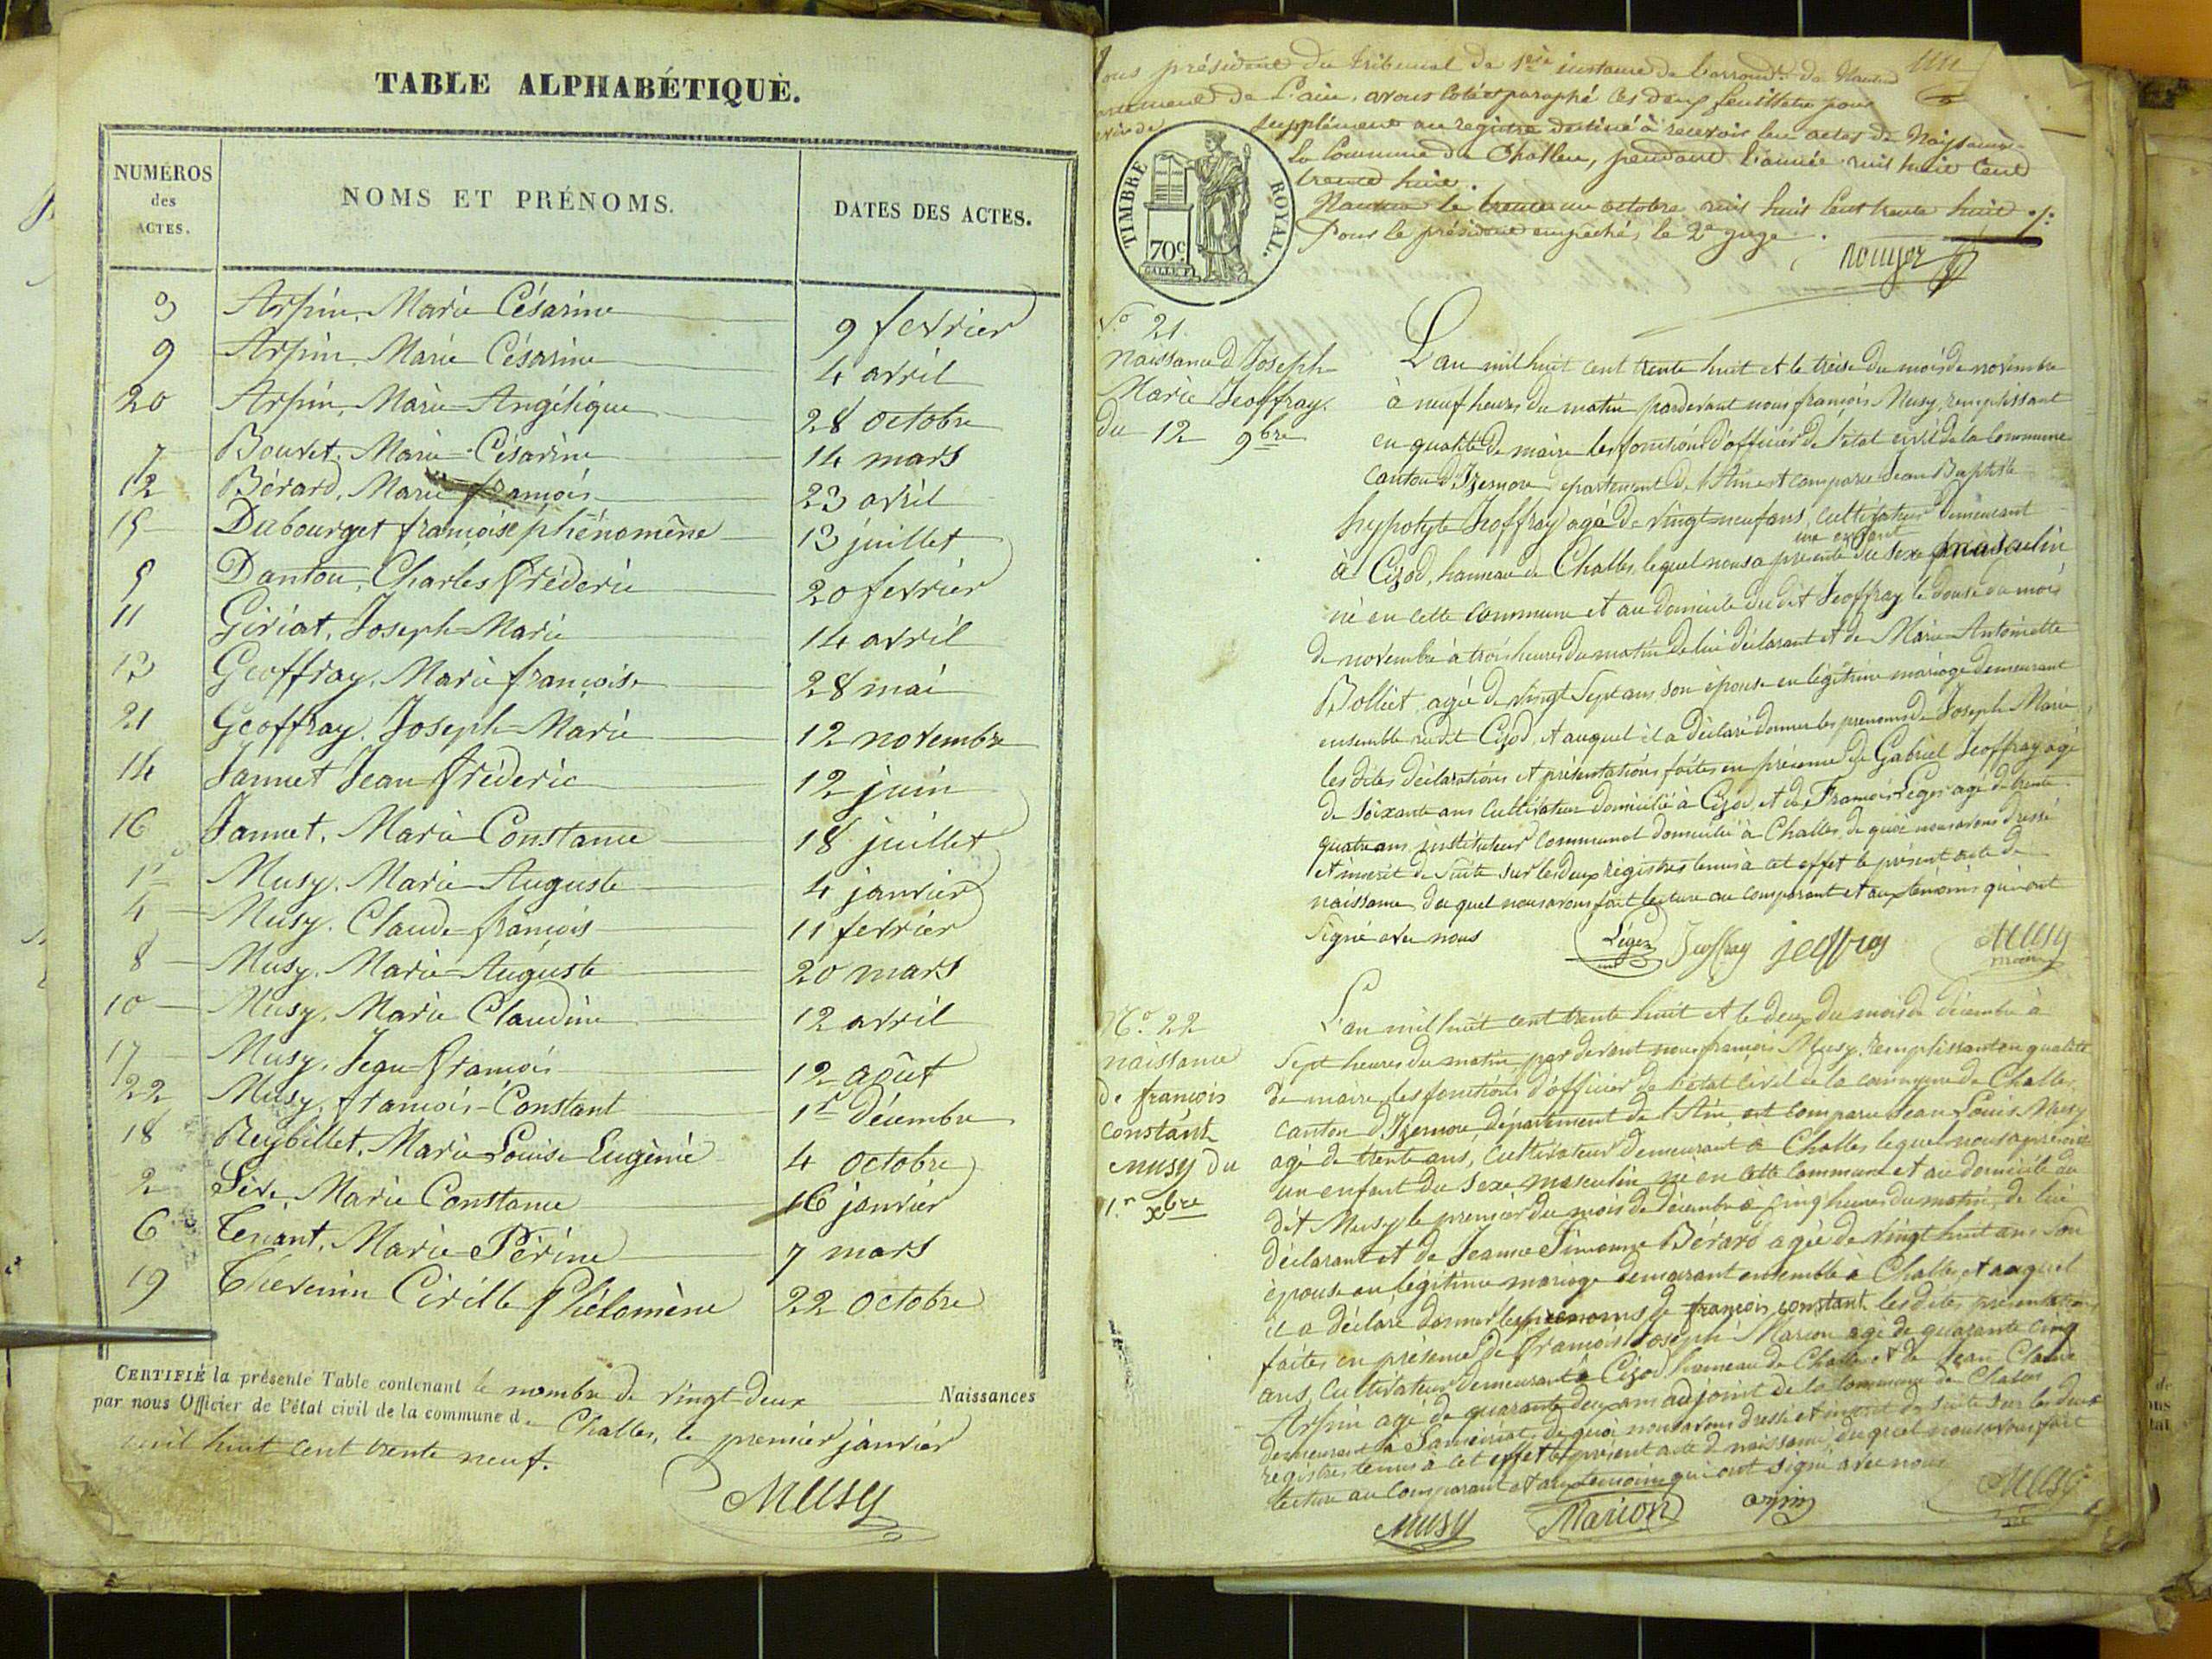 TABLE ALPHABÉTIQUE.
NUMÉROS des ACTES.
NOMS ET PRÉNOMS.
DATES DES ACTES.
3 Arpin, Marie Césarine 9 fevrier
9 Arpin, Marie Césarine 4 avril
20 Arpin, Marie-Angélique 28 octobre
7 Bouvet, Marie-Césarine 14 mars
12 Bérard, Marie françois 23 avril
15 Dubourget françoise phénomène 13 juillet
5 Danton, Charles fréderic 20 fevrier
11 Giriat, Joseph-Marie 14 avril
13 Geoffray, Marie françoise 28 mai
21 Geoffray, Joseph-Marie 12 novembre
14 Jannet Jean fréderic 12 juin
16 Jannet, Marie Constance 18 juillet
1r Musy, Marie-Auguste 4 janvier
4 Musy, Claude-françois 11 fevrier
8 Musy, Marie-Auguste 20 mars
10 Musy, Marie Claudine 12 avril
17 Musy, Jean-françois 12 août
22 Musy, françois-Constant 1r décembre
18 Reybillet, Marie Louise Eugénie 4 octobre
2 Sève Marie Constance 16 janvier
6 Tenant, Marie-Périne 7 mars
19 Thevenin Cirille Philomène 22 octobre
CERTIFIÉ la présente Table contenant le nombre de vingt-deux Naissances
par nous Officier de l'état civil de la commune de Challes, le premier janvier
mil huit cent trente neuf.
Musy
Nous président du tribunal de 1ère instance de l'arrondt de Nantua
de l'ain, avons coté et paraphé ces deux feuillets pour
supplément au registre destiné à recevoir les actes de Naissance
la Commune de Challes, pendant l'année mil huit cent
trente huit.
Nantua le trente un octobre mil huit cent trente huit
Pour le président empêché, le 2e juge
TIMBRE ROYAL.
70c
No 21
Naissance d Joseph
Marie Jeoffray
du 12 9bre
L'an mil huit cent trente huit et le treise du mois de novembre
à neuf heures du matin pardevant nous françois Musy, remplissant
en qualité de maire les fonctions d'officier de l'état civil de la Commune
canton d'Izernore département de l'Ain est comparu Jean Baptiste
hypolyte Jeoffray agé de vingt-neuf ans, cultivateur demeurant
à Cizod, hameau de Challes, lequel nous a présenté un enfant du sexe masculin
né en cette commune et au domicile dudit Jeoffray le douse du mois
de novembre à trois heures du matin de lui déclarant et de Marie-Antoinette
Bolliet, agée de vingt sept ans, son épouse en légitime mariage demeurant
ensemble audit Cizod, et auquel il a déclaré donner les prenoms de Joseph Marie
les dites déclarations et présentations faites en présence de Gabriel Jeoffray agé
de soixante ans cultivateur domicilié à Cizod, et de François Leger agé de trente
quatre ans, instituteur communal domicilié à Challes, de quoi nous avons dressé
et inscrit de suite sur les deux registres tenus à cet effet le présent acte de
naissance, duquel nous avons fait lecture au comparant et aux témoins qui ont
signé avec nous
Léger Jeoffray jeoffray Musy maire
No 22
naissance
de françois
constant
musy du
1.r xbre
L'an mil huit cent trente huit et le deux du mois de décembre à
sept heures du matin, par devant nous françois Musy, remplissant en qualité
de maire, les fonctions d'officier de l'état civil de la commune de Challes,
canton d'Izernore, département de l'Ain, est comparu Jean Louis Musy
agé de trente ans, cultivateur demeurant à Challes lequel nous a présenté
un enfant du sexe masculin, né en cette commune et au domicile du
dit Musy le premier du mois de décembre à cinq heures du matin, de lui
déclarant et de Jeanne Simonne Bérard agée de vingt huit ans son
épouse en légitime mariage demeurant ensemble à Challes, et auquel
il a déclaré donner les prénoms de françois, constant, lesdites présentations
faites en présence de françois Joseph Marion agé de quarante cinq
ans, cultivateur demeurant à Cizod hameau de Challes et de Jean Claude
Arpin agé de quarante deux ans adjoint de la commune de Challes
demeurant à de quoi nous avons dressé et inscrit de suite sur les deux
registres tenus à cet effet le présent acte de naissance, duquel nous avons fait
lecture au comparant et aux témoins qui ont signé avec nous
musy Marion arpin Musy